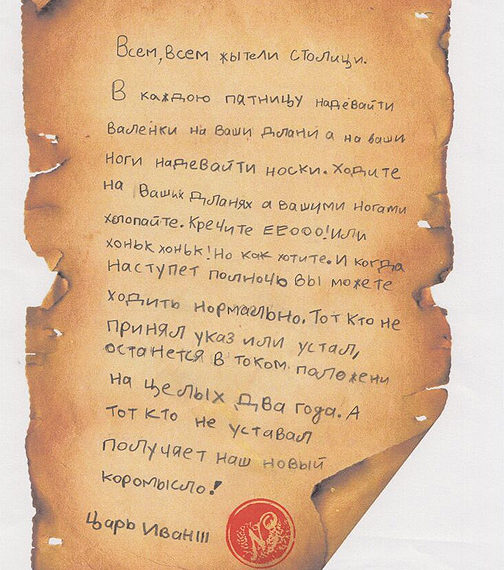 Всем, всем жытели столици.
В каждою патницу надевайти
валенки на ваши длани а на ваши
ноги надевайти носки. Ходите
на вашых дланях а вашими ногами
хлопайте. Кречите ЕЕООО! или
хоньк хоньк! Но как хотите. И когда
наступет полночь вы можете
ходить нормально. Тот кто не
принял указ или устал,
останется в током положени
на целых два года. А
тот кто не уставал
получает наш новый
коромысло!
Царь Иван III